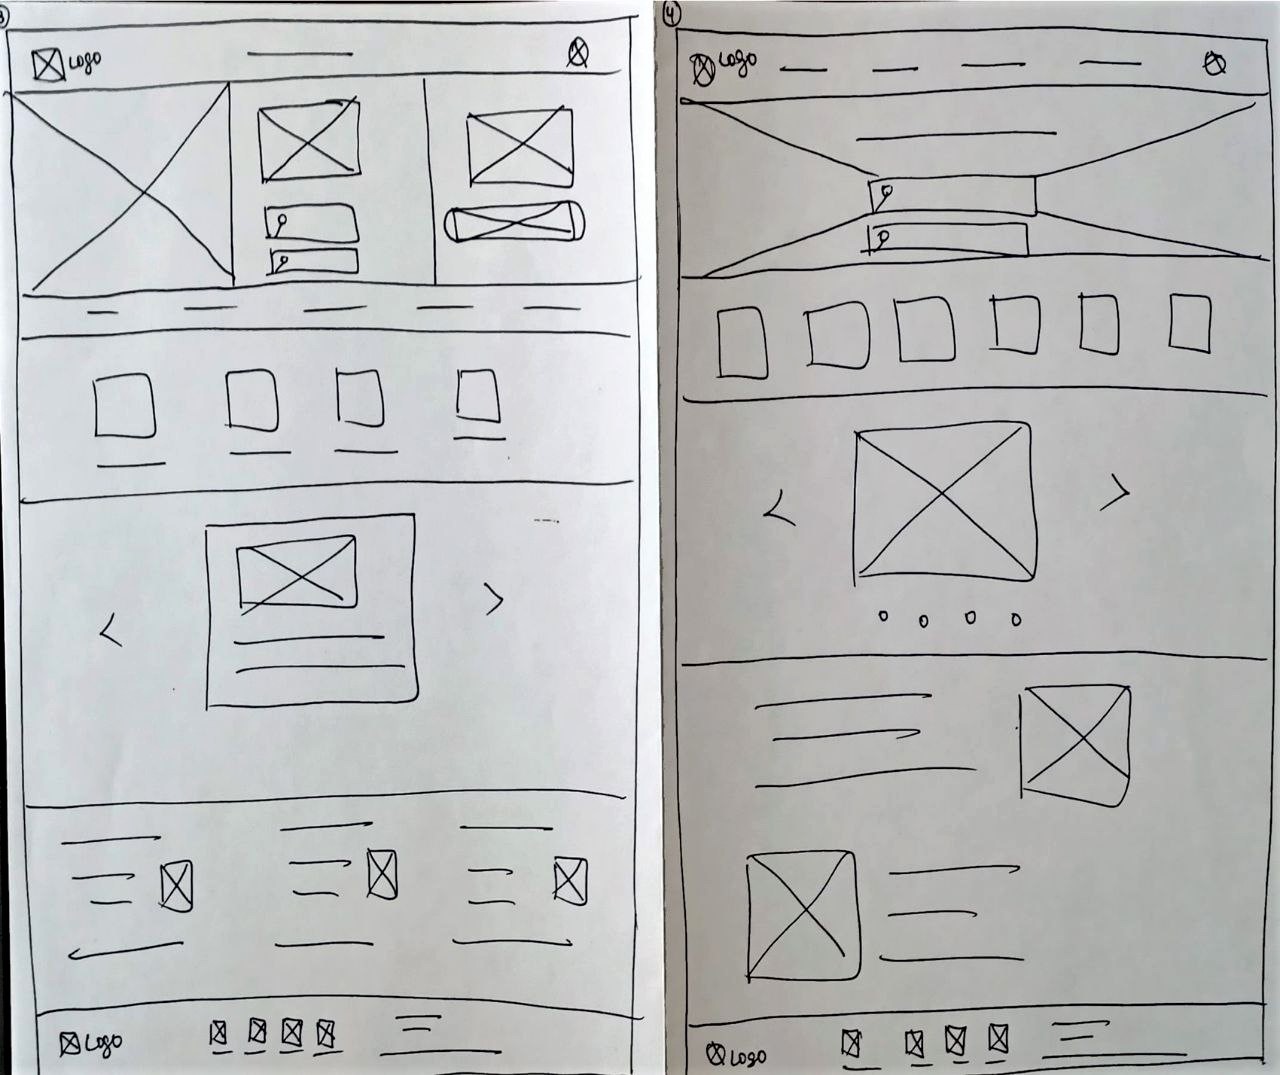 3
Logo
Logo
4
Logo
Logo